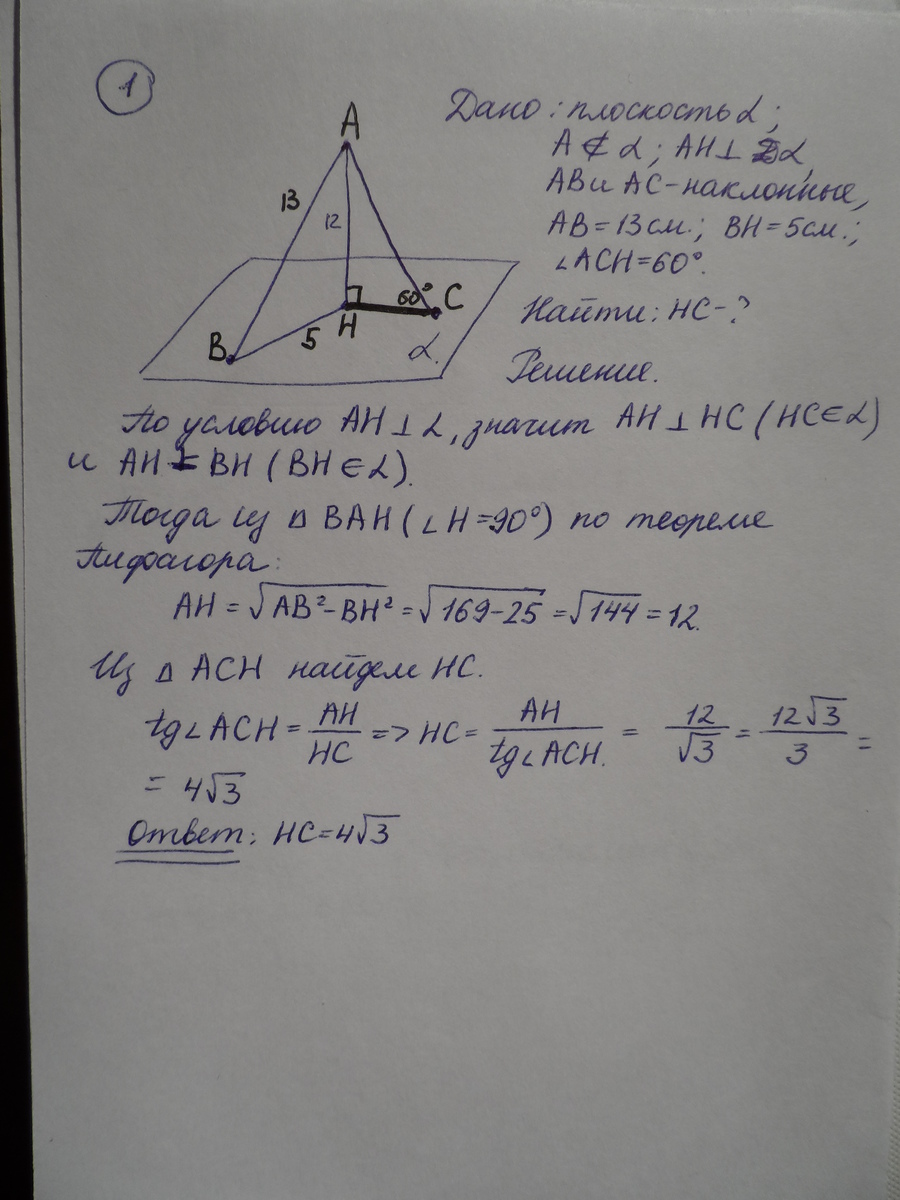 1
Дано: плоскость α;
A ⊄ α; AH ⊥ α
AB и AC - наклонные,
AB = 13 см.; BH = 5 см.;
∠ACH = 60°.
Найти: HC - ?
Решение.
A
13
12
60°
C
B
5
H
α.
По условию AH ⊥ α, значит AH ⊥ HC (HC ∈ α)
и AH ⊥ BH (BH ∈ α).
Тогда из △ BAH (∠H = 90°) по теореме
Пифагора:
AH = √(AB² - BH²) = √(169 - 25) = √144 = 12.
Из △ ACH найдем HC.
tg∠ACH = AH/HC => HC = AH/tg∠ACH. = 12/√3 = 12√3/3 =
= 4√3
Ответ: HC = 4√3